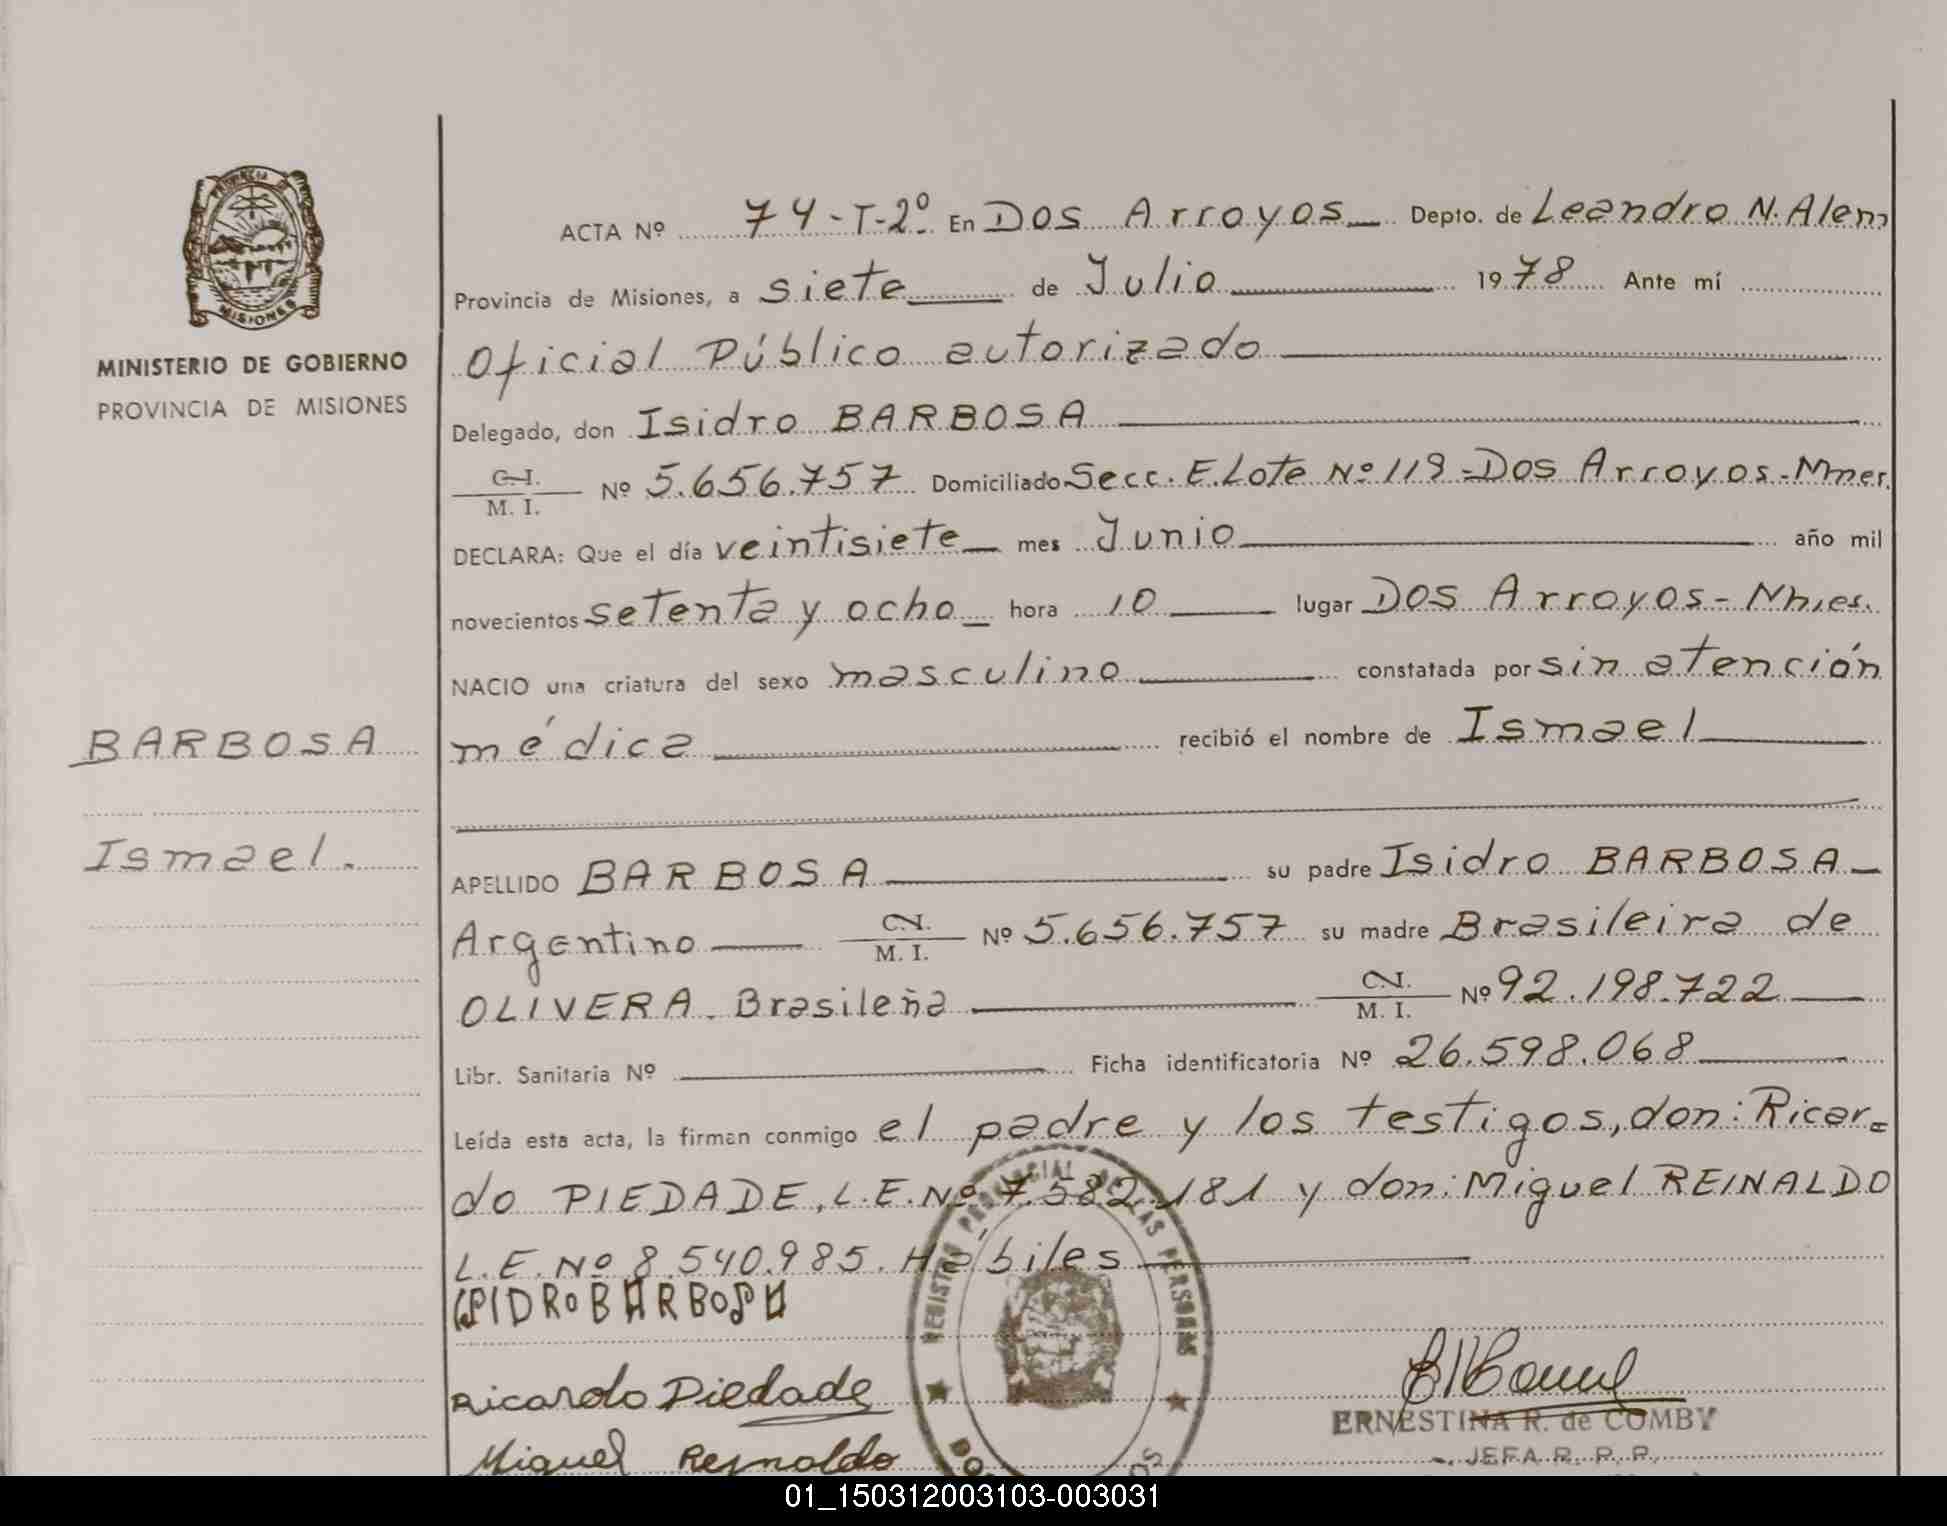 PROVINCIA DE
MISIONES
MINISTERIO DE GOBIERNO
PROVINCIA DE MISIONES
BARBOSA
Ismael.
ACTA Nº 74-T-2º En Dos Arroyos Depto. de Leandro N. Alem
Provincia de Misiones, a siete de Julio 1978 Ante mí
Oficial Público autorizado
Delegado, don Isidro BARBOSA
C.I.
M. I. Nº 5.656.757 Domiciliado Secc. E. Lote Nº 119 - Dos Arroyos -
DECLARA: Que el día veintisiete mes Junio año mil
novecientos setenta y ocho hora 10 lugar Dos Arroyos -
NACIO una criatura del sexo masculino constatada por sin atención
médica recibió el nombre de Ismael
APELLIDO BARBOSA su padre Isidro BARBOSA
Argentino M. I. Nº 5.656.757 su madre Brasileira de
OLIVERA. Brasileña M. I. Nº 92.198.722
Libr. Sanitaria Nº Ficha identificatoria Nº 26.598.068
Leída esta acta, la firman conmigo el padre y los testigos, don: Ricar=
do PIEDADE, L.E. Nº 7.582.181 y don: Miguel REINALDO
L.E. Nº 8.540.985. Hábiles
ISIDRO BARBOSA
Ricardo Piedade
Miguel Reynaldo
REGISTRO PROVINCIAL DE LAS PERSONAS
ERNESTINA R. de COMBY
JEFA R. P. P.
01_150312003103-003031